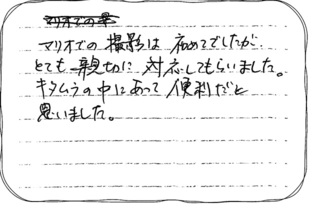 マリオでの撮影は初めてでしたが
とても親切に対応してもらいました。
キタムラの中にあって便利だと
思いました。